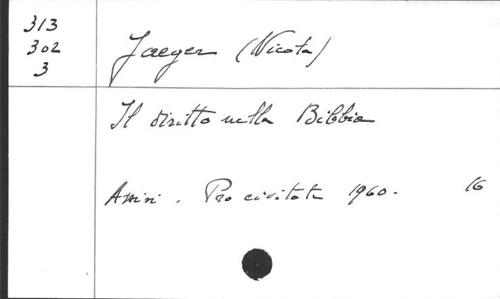 313
302
3
Jaeger (Nicola)
Il diritto nella Bibbia
Assisi. Pro civitate 1960. 16